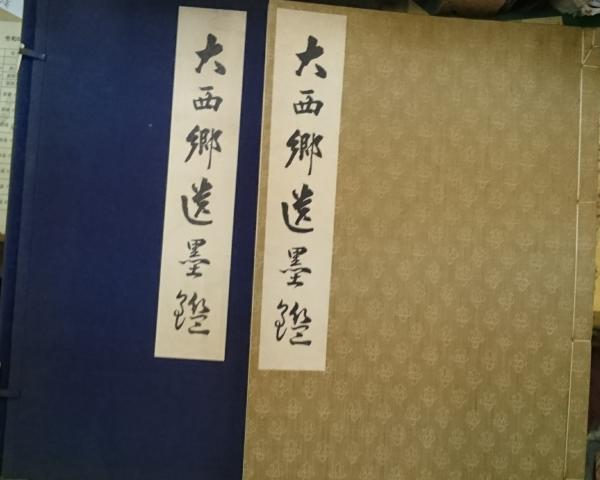 大西郷遺墨鑑
大西郷遺墨鑑